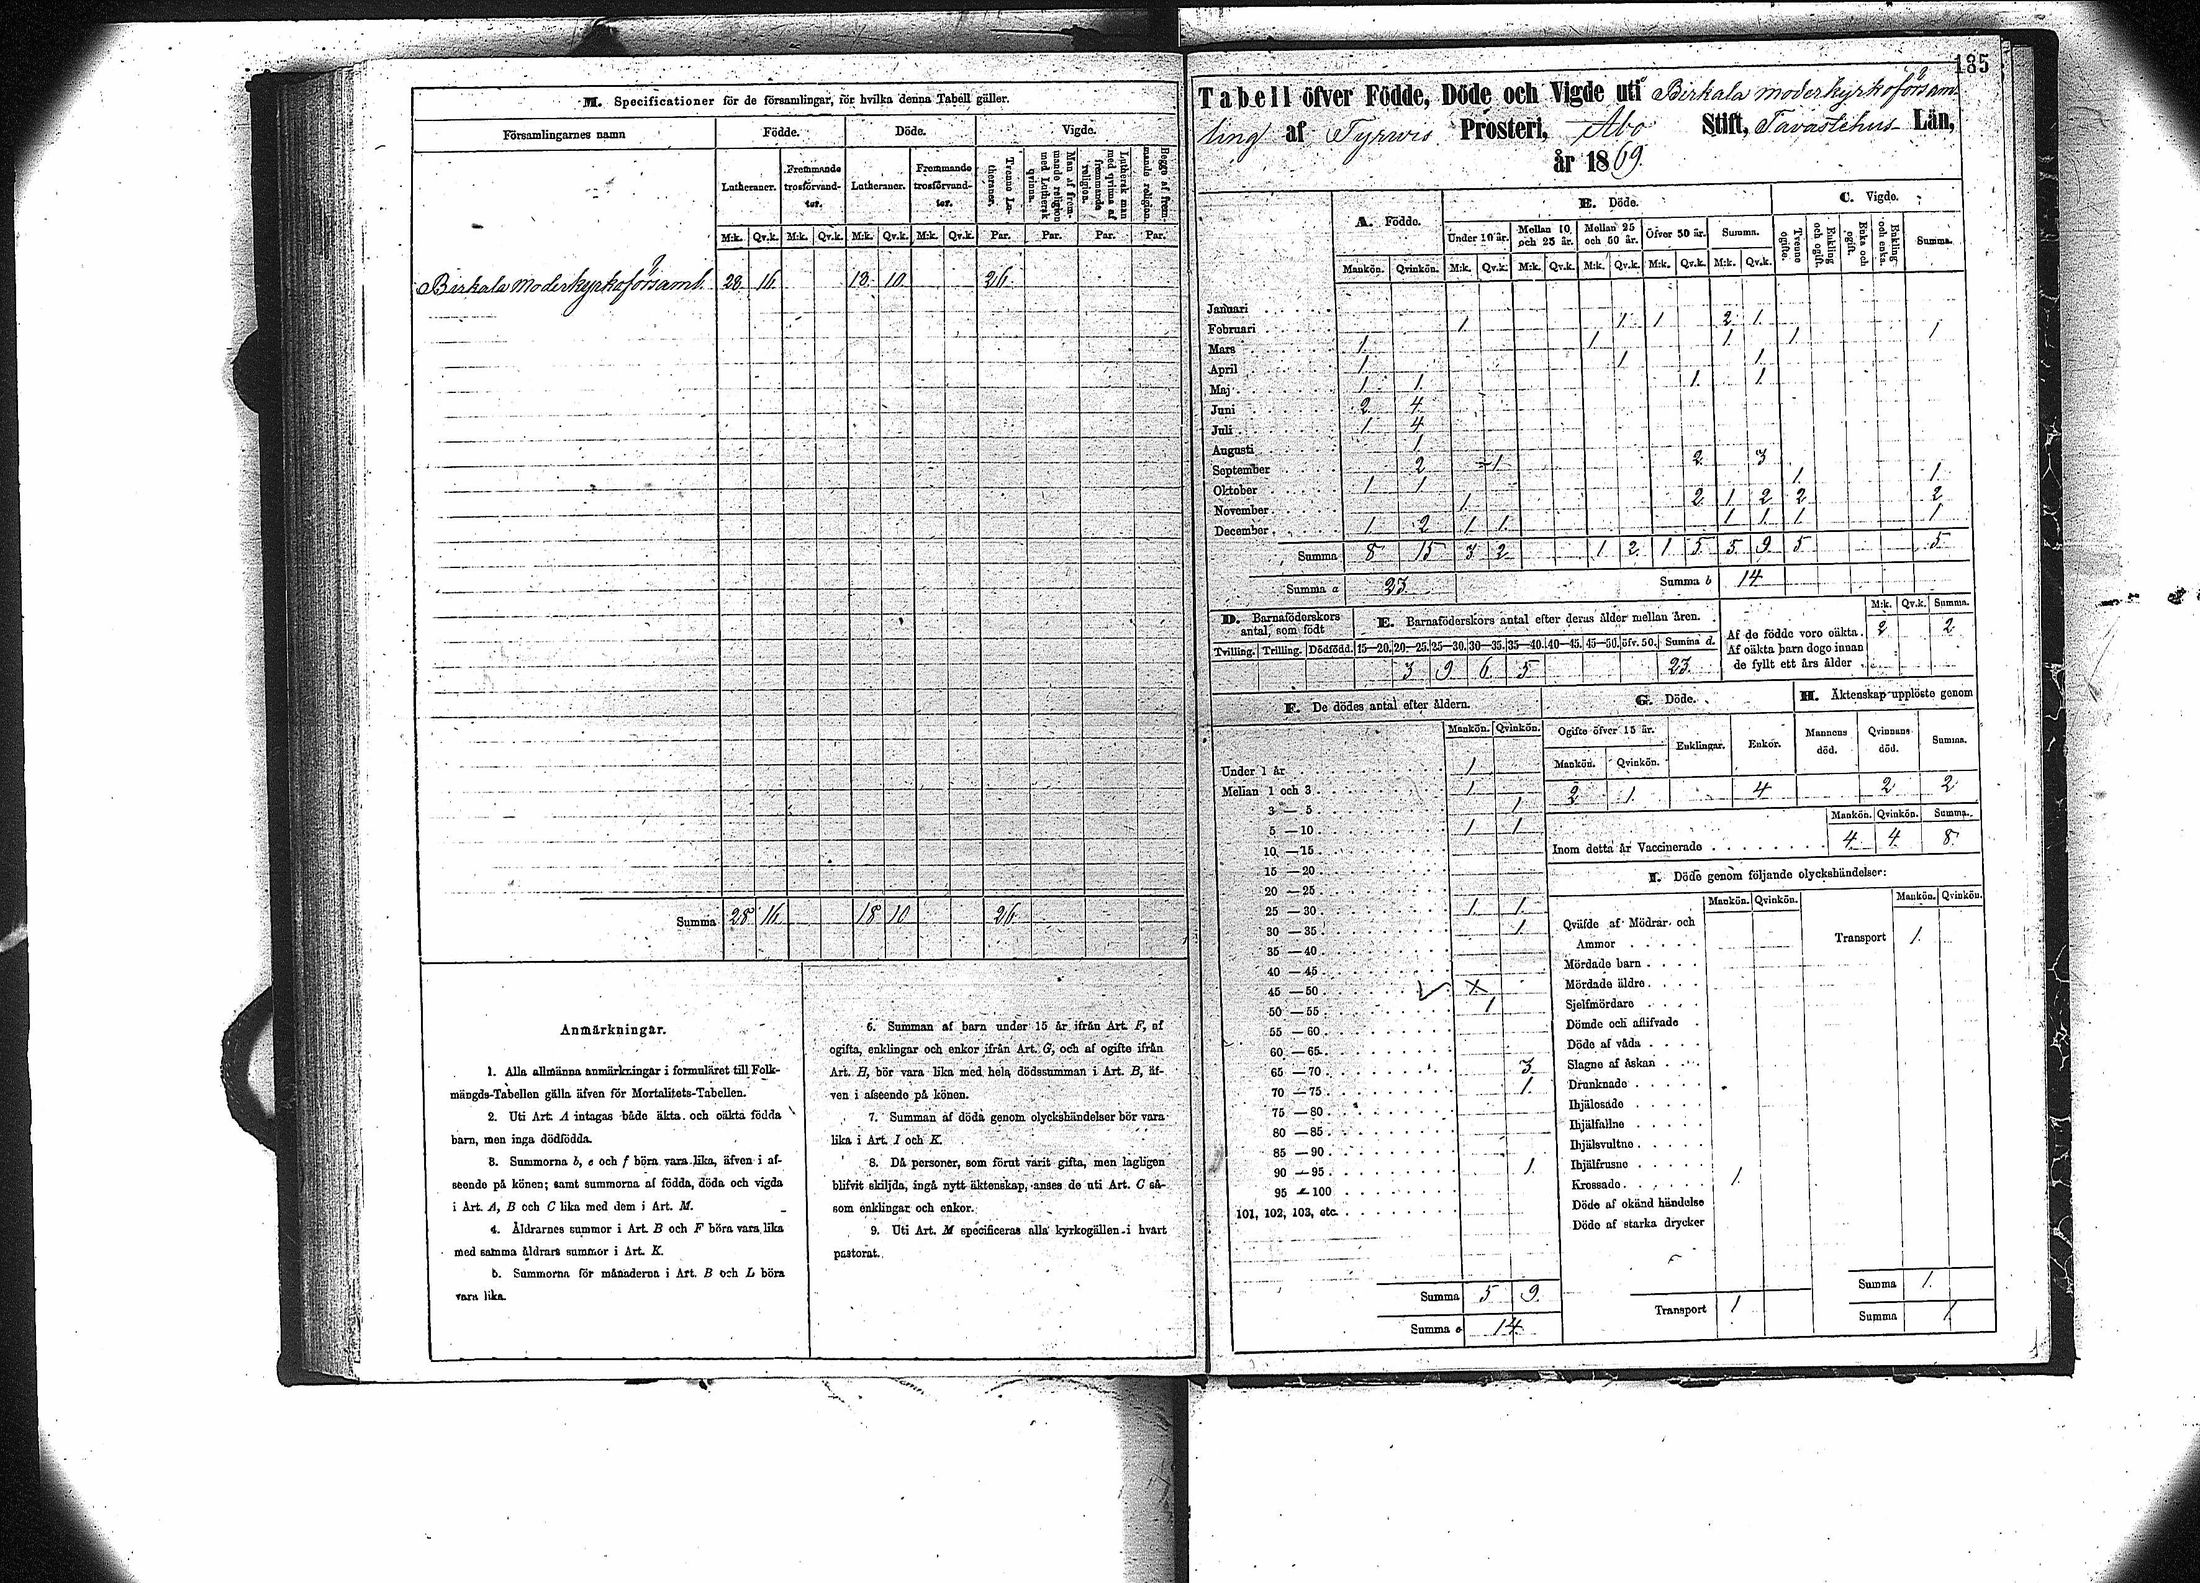 M. Specificationer för de församlingar, för hvilka denna Tabell gäller.
Församlingarnes namn
Födde. Döde. Vigde.
Lutheraner. Fremmande trosförvandter. Lutheraner. Fremmande trosförvandter. Tvenne Lutheraner. Man af fremmande religion med Luthersk qvinna. Luthersk man med qvinna af fremmande religion. Begge af fremmande religion.
M:k. Qv.k. M:k. Qv.k. M:k. Qv.k. M:k. Qv.k. Par. Par. Par. Par.
Birkala moderkyrkoförsaml. 28 16 18 10 26
Summa 28 16 18 10 26
Anmärkningar.
1. Alla allmänna anmärkningar i formuläret till Folk-
mängds-Tabellen gälla äfven för Mortalitets-Tabellen.
2. Uti Art. A intagas både äkta och oäkta födda
barn, men inga dödfödda.
3. Summorna b, e och f böra vara lika, äfven i af-
seende på könen; samt summorna af födda, döda och vigda
i Art. A, B och C lika med dem i Art. M.
4. Åldrarnes summor i Art. B och F böra vara lika
med samma åldrars summor i Art. K.
5. Summorna för månaderna i Art. B och L böra
vara lika.
6. Summan af barn under 15 år ifrån Art. F, af
ogifta, enklingar och enkor ifrån Art. G, och af ogifte ifrån
Art. H, bör vara lika med hela dödssumman i Art. B, äf-
ven i afseende på könen.
7. Summan af döda genom olyckshändelser bör vara
lika i Art. I och K.
8. Då personer, som förut varit gifta, men lagligen
blifvit skiljda, ingå nytt äktenskap, anses de uti Art. C så-
som enklingar och enkor.
9. Uti Art. M specificeras alla kyrkogällen i hvart
pastorat.
185
Tabell öfver Födde, Döde och Vigde uti Birkala moderkyrkoförsam
ling af Tyrwis Prosteri, Åbo Stift, Tavastehus Län,
år 1869
A. Födde. B. Döde. C. Vigde.
Under 10 år. Mellan 10 och 25 år. Mellan 25 och 50 år. Öfver 50 år. Summa. Tvenne ogifte. Enkling och ogift. Enka och ogift. Enkling och enka. Summa.
Mankön. Qvinkön. M:k. Qv.k. M:k. Qv.k. M:k. Qv.k. M:k. Qv.k. M:k. Qv.k.
Januari
Februari 1 1 1 2 1
Mars 1 1 1 1 1
April 1 1 1
Maj 1 1 1 1
Juni 2 4
Juli 1 4
Augusti 1
September 2 1 2 3
Oktober 1 1 1 1
November 1 2 1 2 2 2
December 1 2 1 1 1 1 1 1
Summa 8 15 3 2 1 2 1 5 5 9 5 5
Summa a 23 Summa b 14
D. Barnaföderskors antal, som födt
E. Barnaföderskors antal efter deras ålder mellan åren.
Tvilling. Trilling. Dödfödd. 15—20. 20—25. 25—30. 30—35. 35—40. 40—45. 45—50. öfv. 50. Summa d.
3 9 6 5 23
M:k. Qv.k. Summa.
Af de födde voro oäkta. 2 2
Af oäkta barn dogo innan
de fyllt ett års ålder
F. De dödes antal efter åldern.
Mankön. Qvinkön.
Under 1 år 1
Mellan 1 och 3 1
3 — 5 1
5 —10 1 1
10 —15
15 —20
20 —25
25 —30 1 1
30 —35 1
35 —40
40 —45
45 —50
50 —55 1
55 —60
60 —65
65 —70 3
70 —75 1
75 —80
80 —85
85 —90
90 —95 1
95 —100
101, 102, 103, etc.
Summa 5 9
Summa e 14
G. Döde.
Ogifte öfver 15 år. Enklingar. Enkor.
Mankön. Qvinkön.
2 1 4
H. Äktenskap upplöste genom
Mannens död. Qvinnans död. Summa.
2 2
Mankön. Qvinkön. Summa.
Inom detta år Vaccinerade 4 4 8
I. Döde genom följande olyckshändelser:
Mankön. Qvinkön. Mankön. Qvinkön.
Qväfde af Mödrar och
Ammor
Transport 1
Mördade barn
Mördade äldre
Sjelfmördare
Dömde och aflifvade
Döde af våda
Slagne af åskan
Drunknade
Ihjälosade
Ihjälfallne
Ihjälsvultne
Ihjälfrusne
Krossade 1
Döde af okänd händelse
Döde af starka drycker
Transport 1
Summa 1
Summa 1